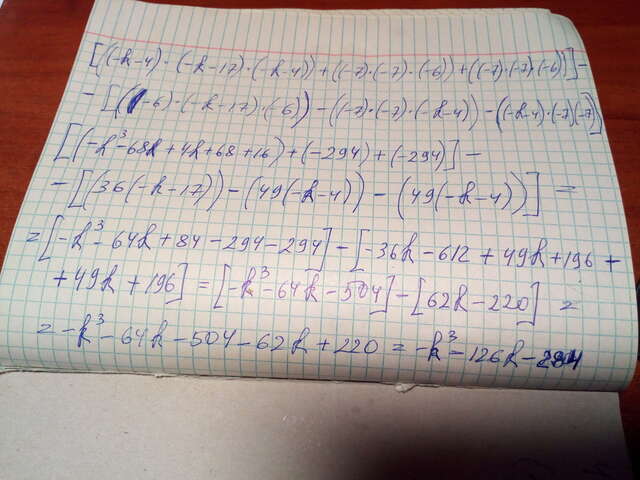 [((-k-4)·(-k-17)·(-k-4))+((-7)·(-7)·(-6))+((-7)·(-7)·(-6))]-
-[((-6)·(-k-17)·(-6))-((-7)·(-7)·(-k-4))-((-k-4)·(-7)(-7))]
[(-k³-68k+4k+68+16)+(-294)+(-294)]-
-[(36(-k-17))-(49(-k-4))-(49(-k-4))]=
=[-k³-64k+84-294-294]-[-36k-612+49k+196+
+49k+196]=[-k³-64k-504]-[62k-220]=
=-k³-64k-504-62k+220=-k³-126k-284